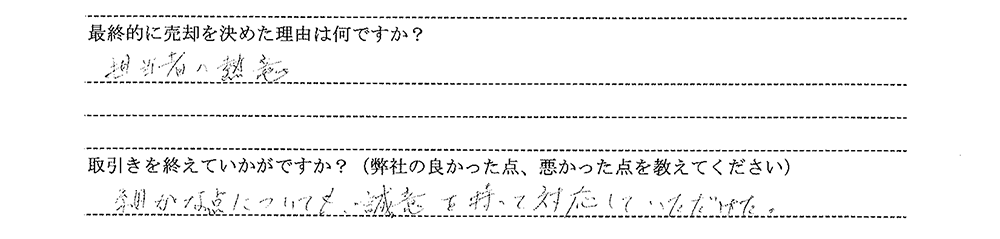 最終的に売却を決めた理由は何ですか？
担当者の熱意
取引きを終えていかがですか？（弊社の良かった点、悪かった点を教えてください）
細かな点についても、誠意を持って対応していただけた。